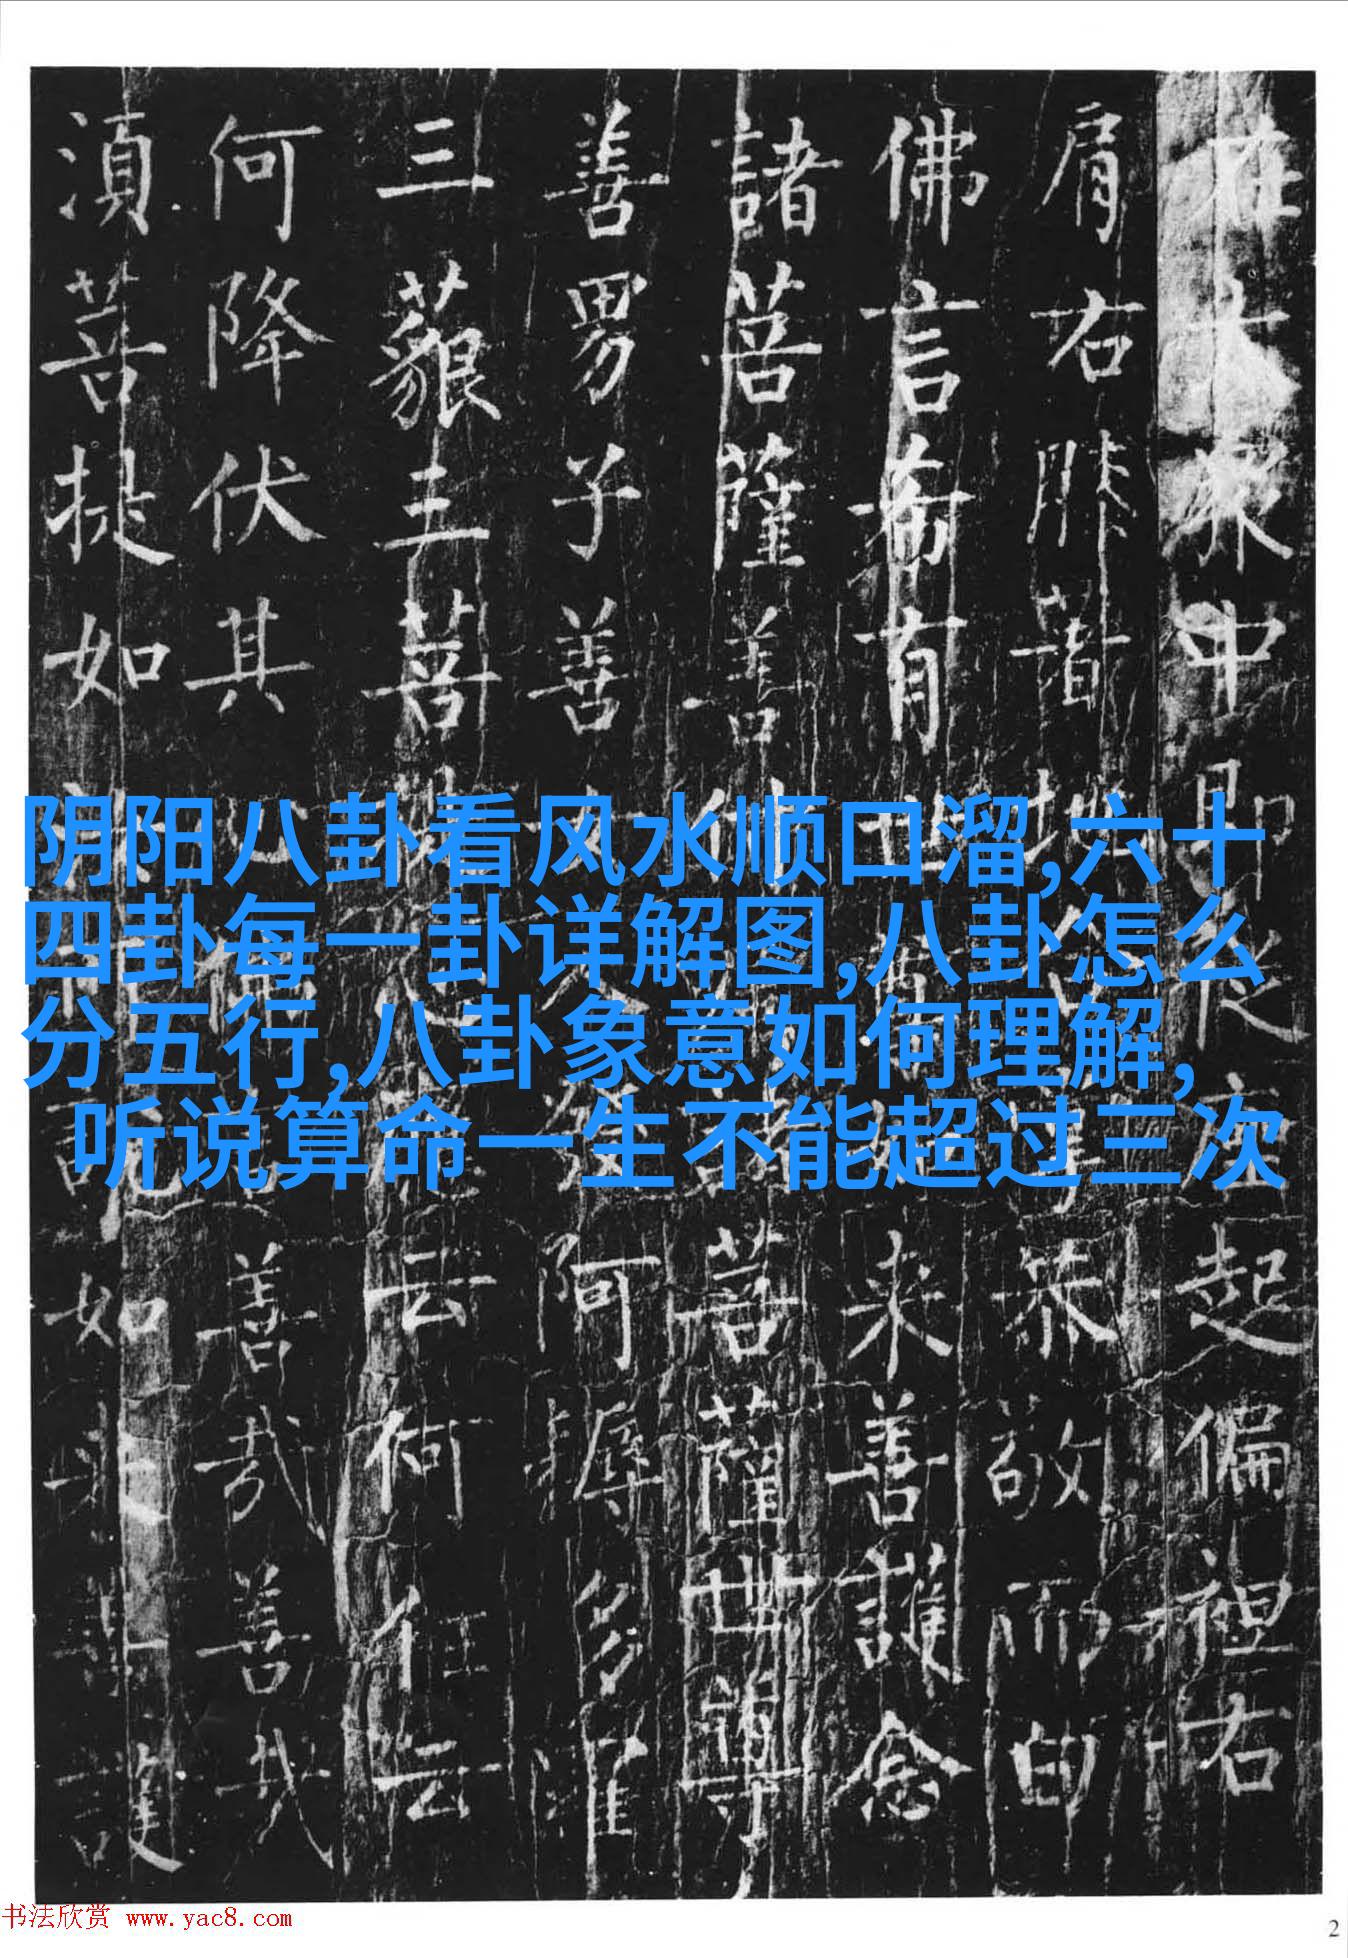 在大眾中即從座起偏袒右
肩右膝著地合掌恭敬而白
佛言希有世尊如来善護念
諸菩薩善付囑諸菩薩世尊
善男子善女人發阿耨多羅
三藐三菩提心應云何住云
何降伏其心佛言善哉善哉
湏菩提如汝所說如来善護
阴阳八卦看风水顺口溜,六十
四卦每一卦详解图,八卦怎么
分五行,八卦象意如何理解,
听说算命一生不能超过三次
书法欣赏 www.yac8.com
2